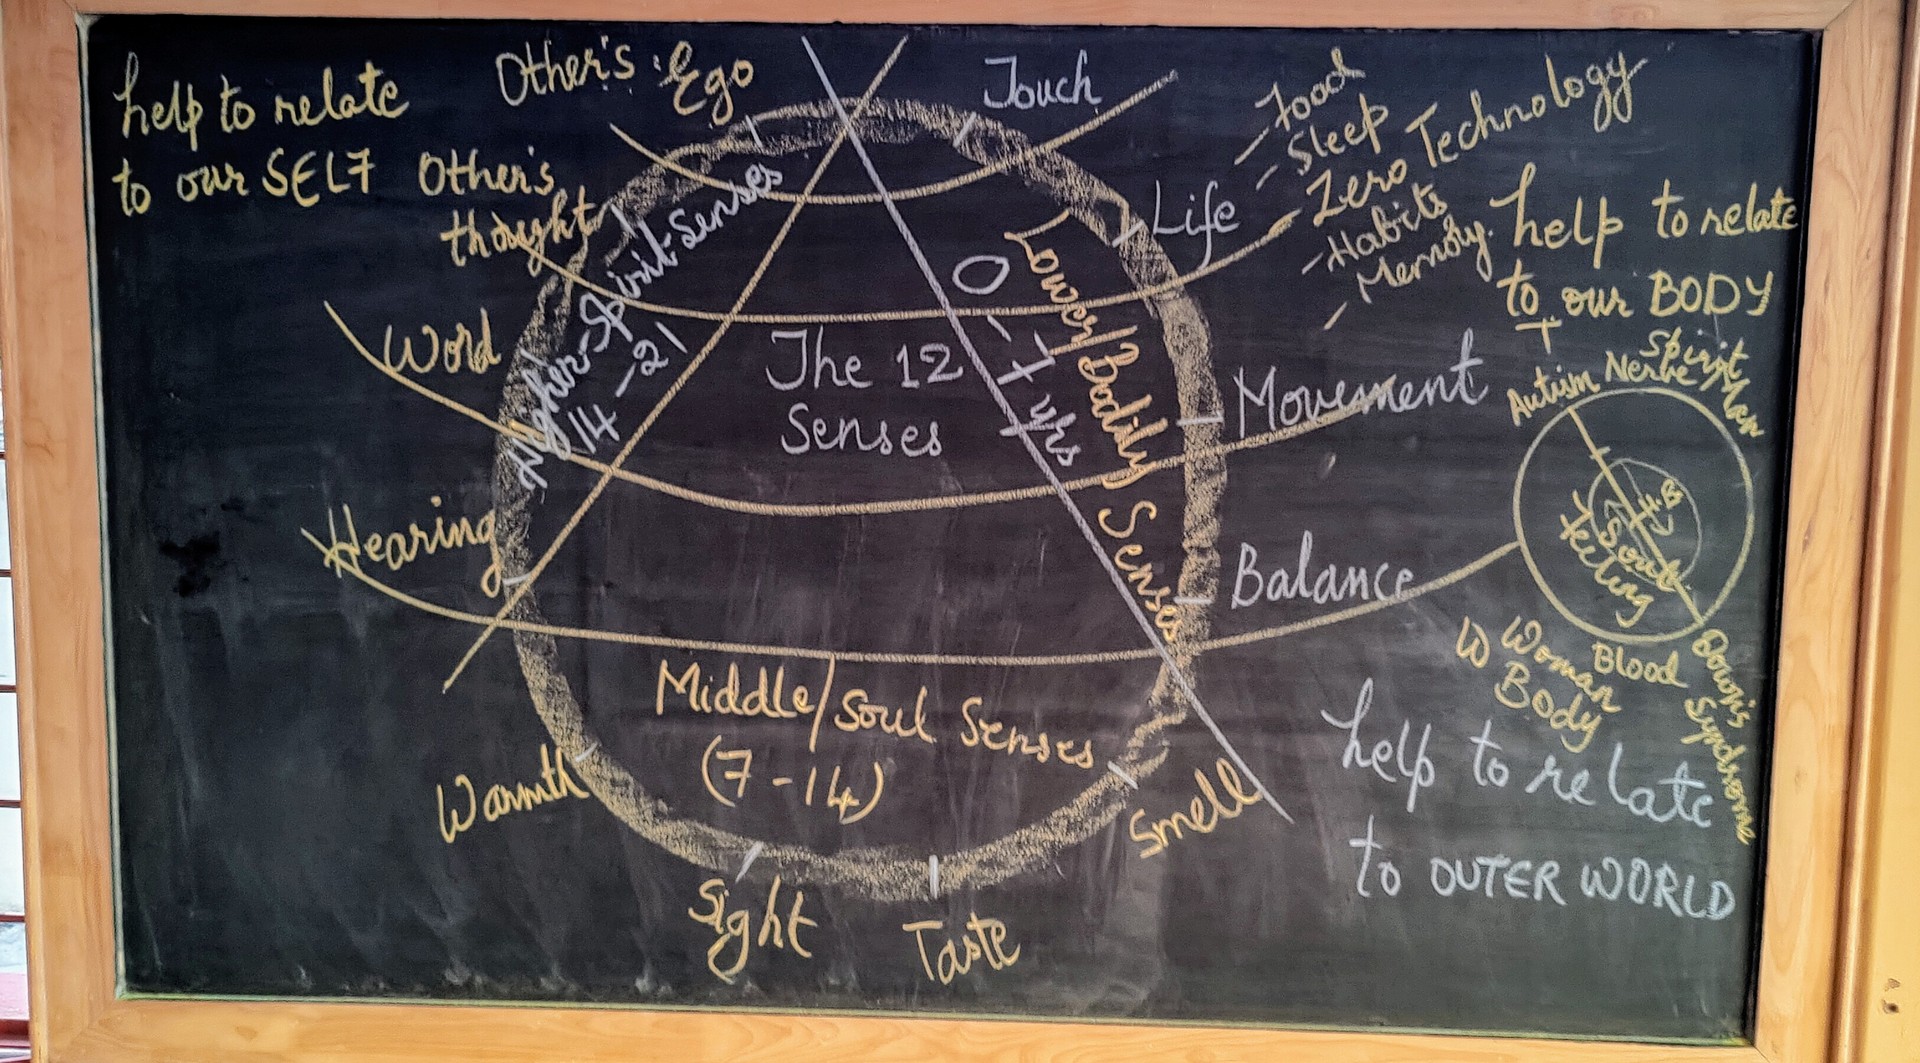 help to relate
to our SELF
Other's Ego
Other's
thought
Word
Hearing
Higher-Spirit-Senses
14-21
The 12
Senses
0-7 yrs
Lower/Bodily Senses
Touch
Life
Movement
Balance
- Food
- Sleep
Zero Technology
- Habits
- Memory.
help to relate
to our BODY
T
Autism Nerve
Spirit
Man
Soul
feeling
W Woman
Body
Blood
Down's
Syndrome
Middle/Soul Senses
(7-14)
Warmth
Sight
Taste
Smell
help to relate
to OUTER WORLD